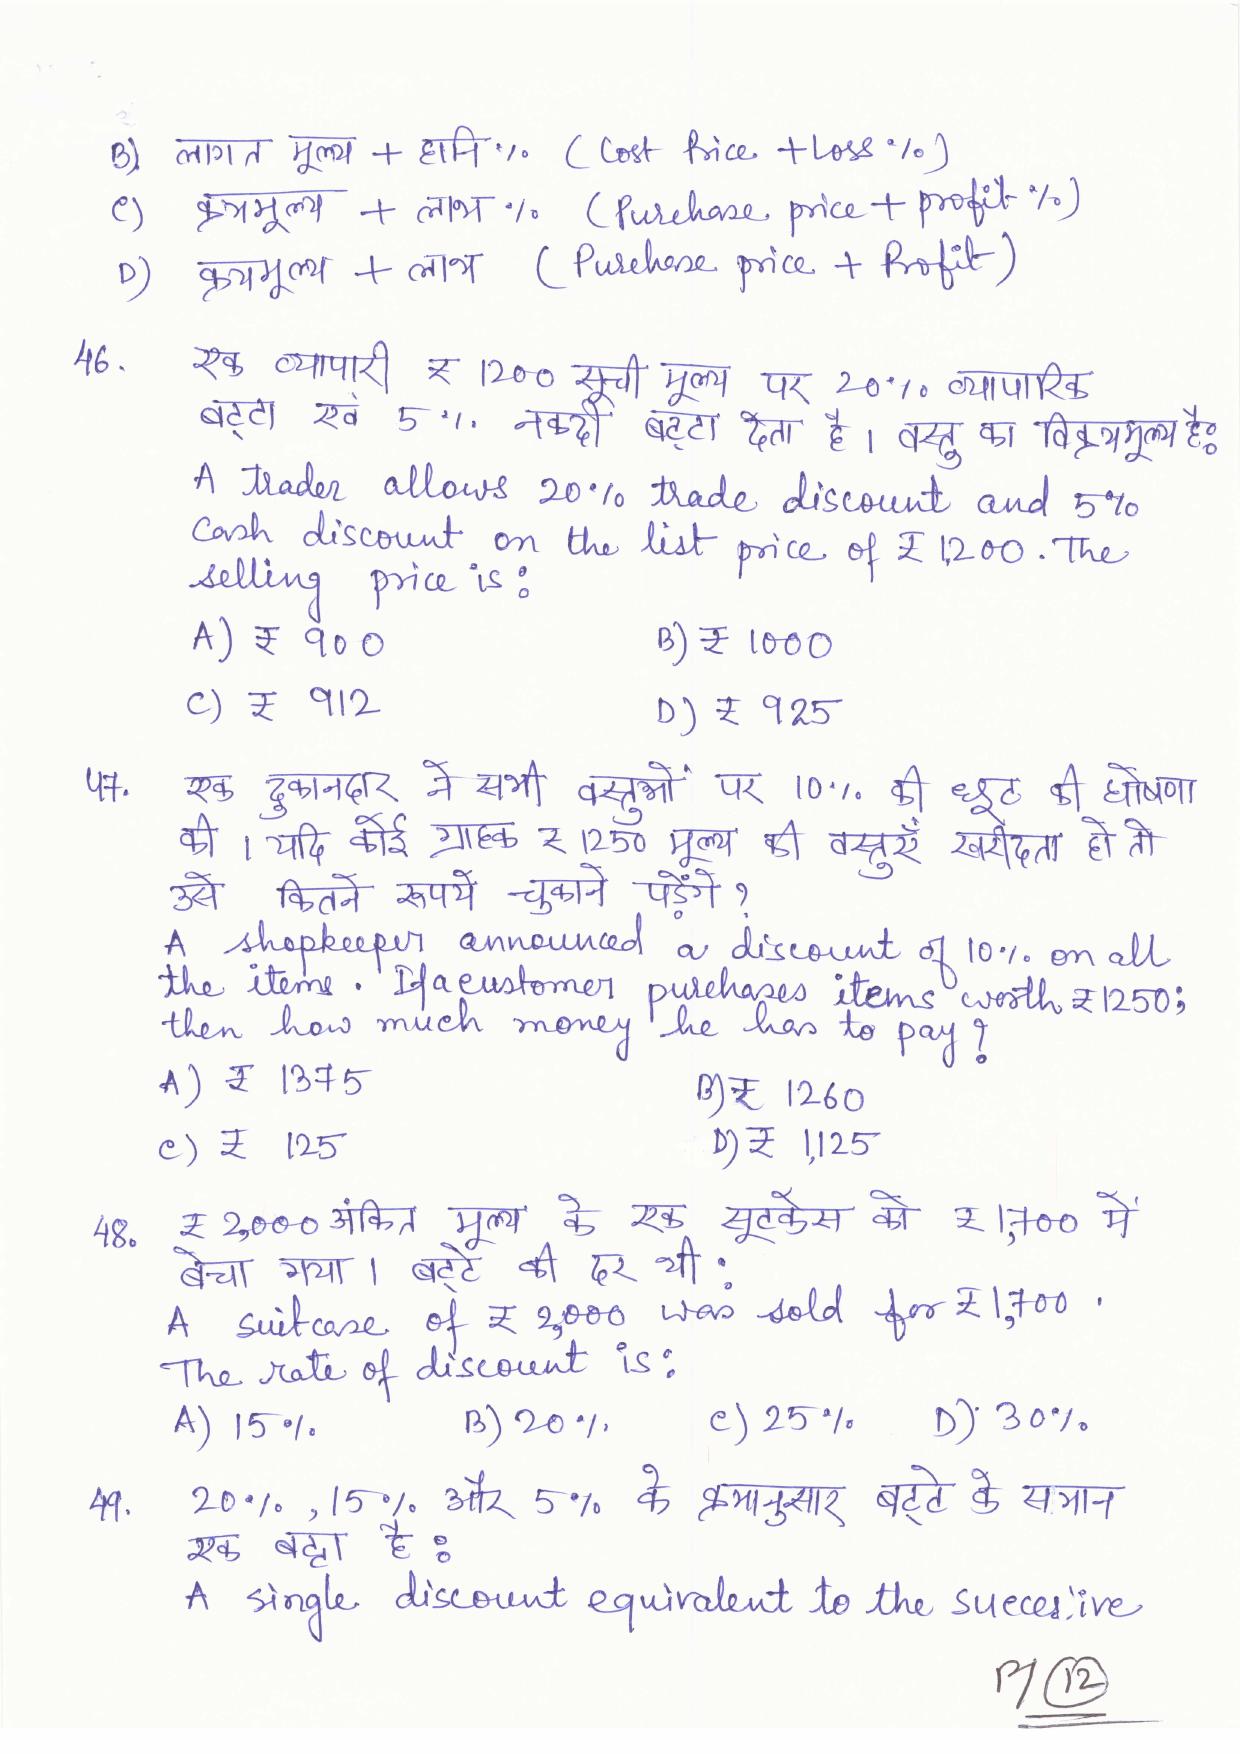 B) लागत मूल्य + हानि % (Cost Price + Loss %)
C) क्रयमूल्य + लाभ % (Purchase price + profit %)
D) क्रयमूल्य + लाभ (Purchase price + Profit)
46. एक व्यापारी ₹ 1200 सूची मूल्य पर 20% व्यापारिक
बट्टा एवं 5% नकदी बट्टा देता है। वस्तु का विक्रयमूल्य है:
A trader allows 20% trade discount and 5%
Cash discount on the list price of ₹ 1,200. The
selling price is:
A) ₹ 900 B) ₹ 1000
C) ₹ 912 D) ₹ 925
47. एक दुकानदार ने सभी वस्तुओं पर 10% की छूट की घोषणा
की। यदि कोई ग्राहक ₹ 1250 मूल्य की वस्तुएँ खरीदता हो तो
उसे कितने रूपये चुकाने पड़ेंगे?
A shopkeeper announced a discount of 10% on all
the items. If a customer purchases items worth ₹ 1250;
then how much money he has to pay?
A) ₹ 1375 B) ₹ 1260
C) ₹ 125 D) ₹ 1,125
48. ₹ 2,000 अंकित मूल्य के एक सूटकेस को ₹ 1,700 में
बेचा गया। बट्टे की दर थी:
A suitcase of ₹ 2,000 was sold for ₹ 1,700.
The rate of discount is:
A) 15% B) 20% C) 25% D) 30%
49. 20%, 15% और 5% के क्रमानुसार बट्टे के समान
एक बट्टा है:
A single discount equivalent to the succesive
P/12